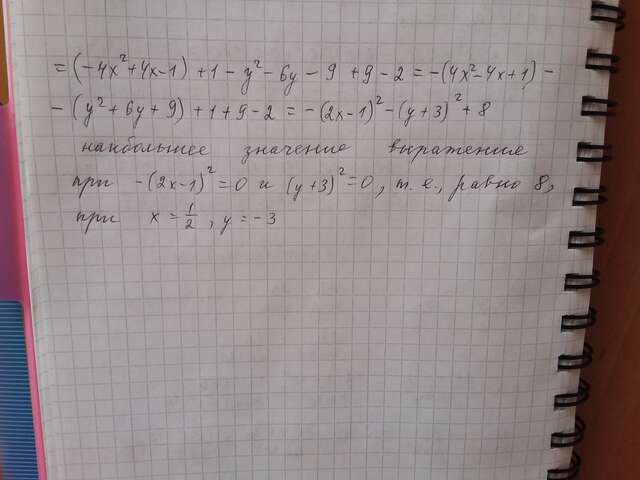 = (-4x²+4x-1) + 1 - y² - 6y - 9 + 9 - 2 = -(4x²-4x+1) -
- (y² + 6y + 9) + 1 + 9 - 2 = -(2x-1)² - (y+3)² + 8
наибольшее значение выражение
при -(2x-1)² = 0 и (y+3)² = 0, т. е., равно 8,
при x = 1/2, y = -3